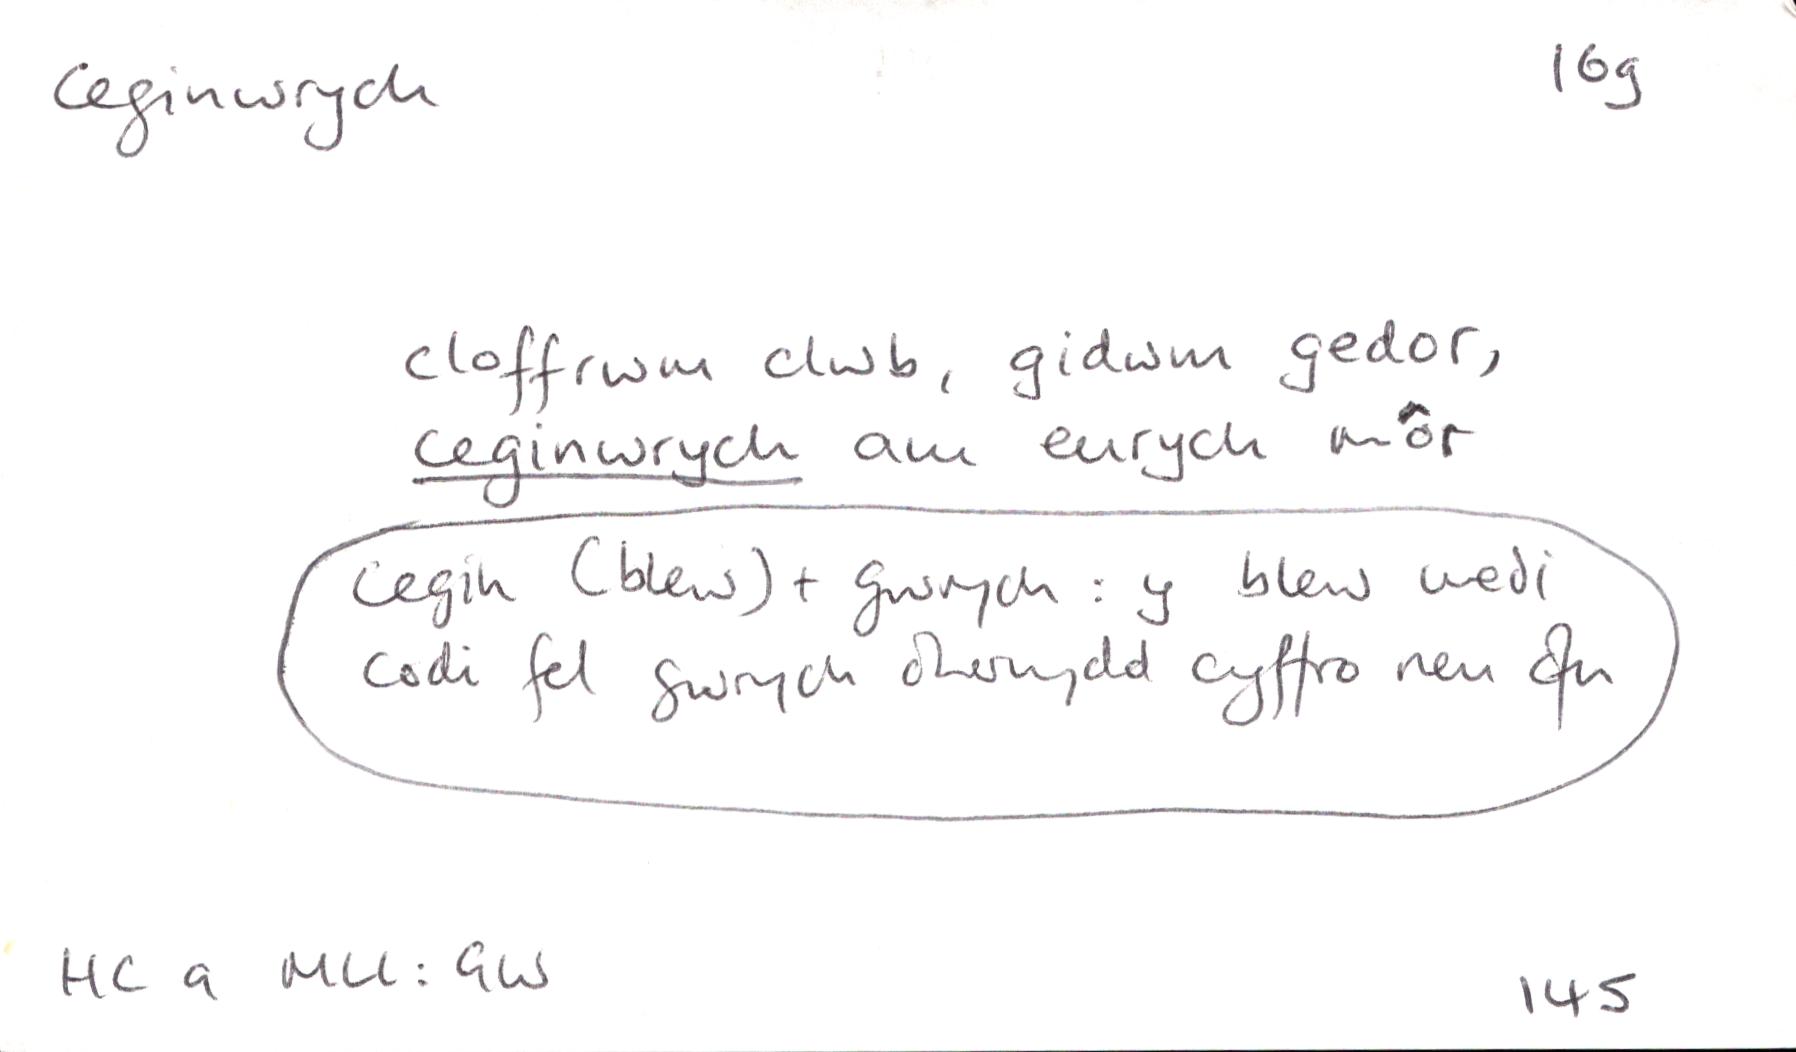 ceginwrych 16g
cloffrwm clwb, gidwm gedor,
ceginwrych am eurych môr
cegin (blew) + gwrych : y blew wedi
codi fel gwrych oherwydd cyffro neu ofn
HC a MLl: GW 145